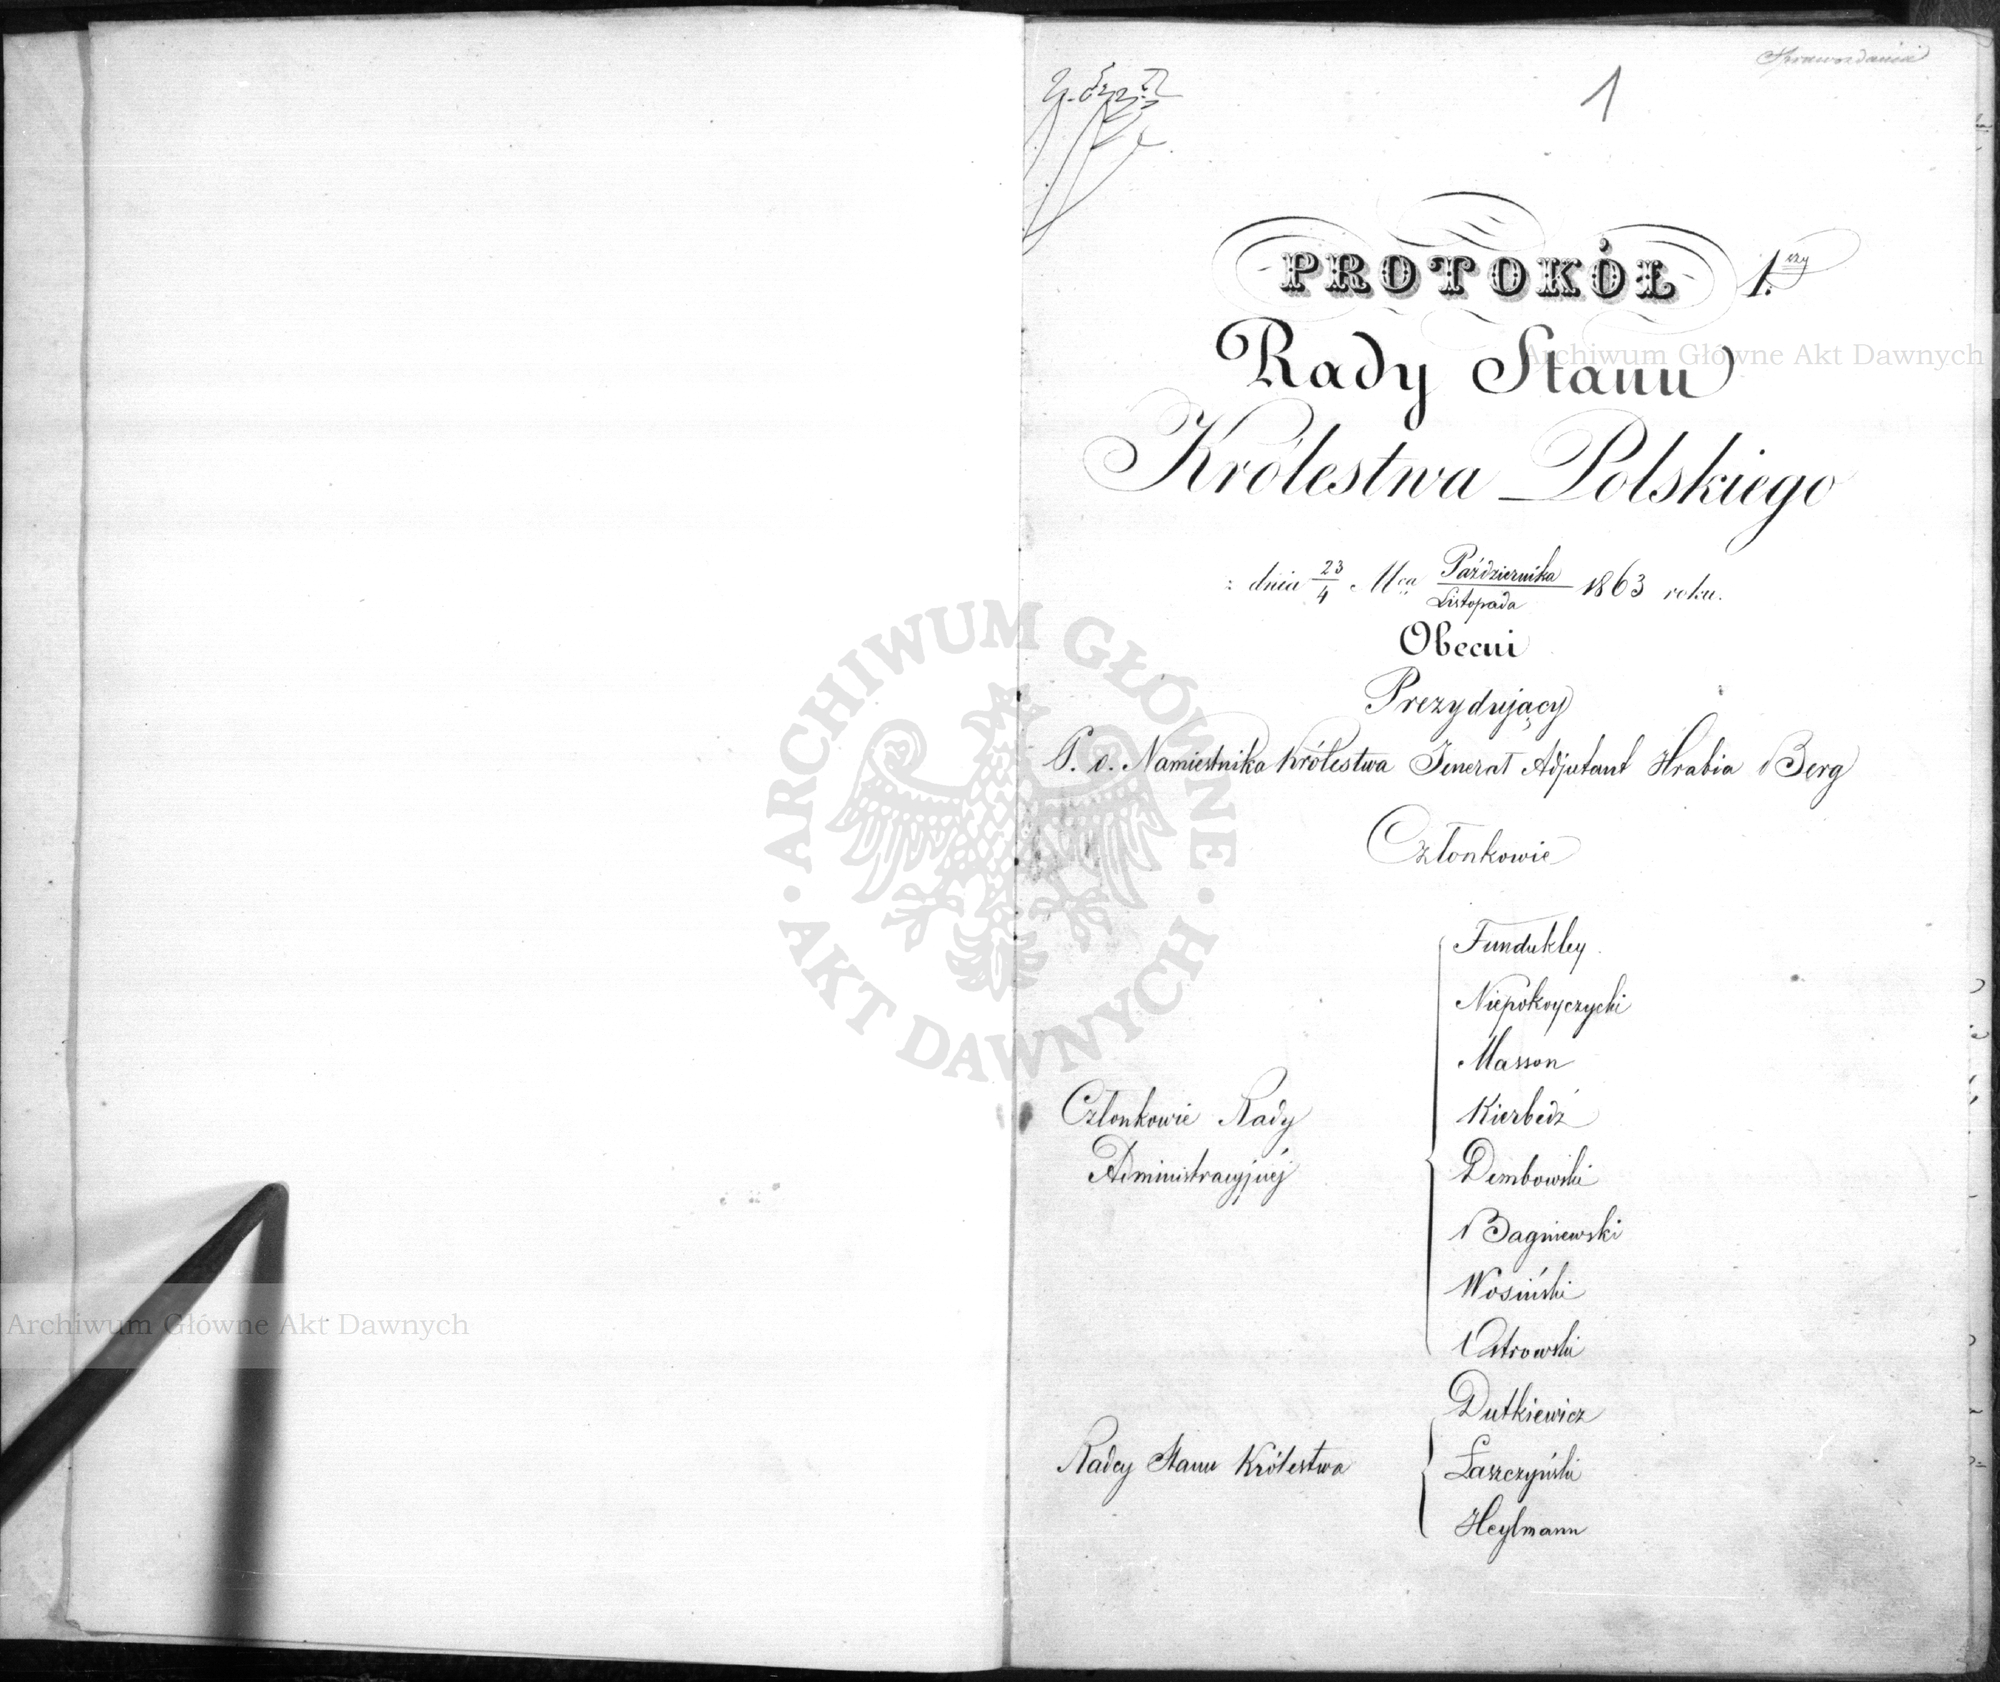 Sprawozdania
1
PROTOKÓŁ 1.szy
Rady Stanu
Królestwa Polskiego
z dnia 23/4 Mca Października/Listopada 1863 roku.
Obecni
Prezydujący
P. o. Namiestnika Królestwa Jenerał Adjutant Hrabia Berg
Członkowie
Członkowie Rady
Administracyjnéj
Fundukley.
Niepokoyczycki
Masson
Kierbedź
Dembowski
Bagniewski
Wosiński
Ostrowski
Radcy Stanu Królestwa
Dutkiewicz
Łaszczyński
Heylmann
Archiwum Główne Akt Dawnych
ARCHIWUM GŁÓWNE · AKT DAWNYCH ·
Archiwum Główne Akt Dawnych